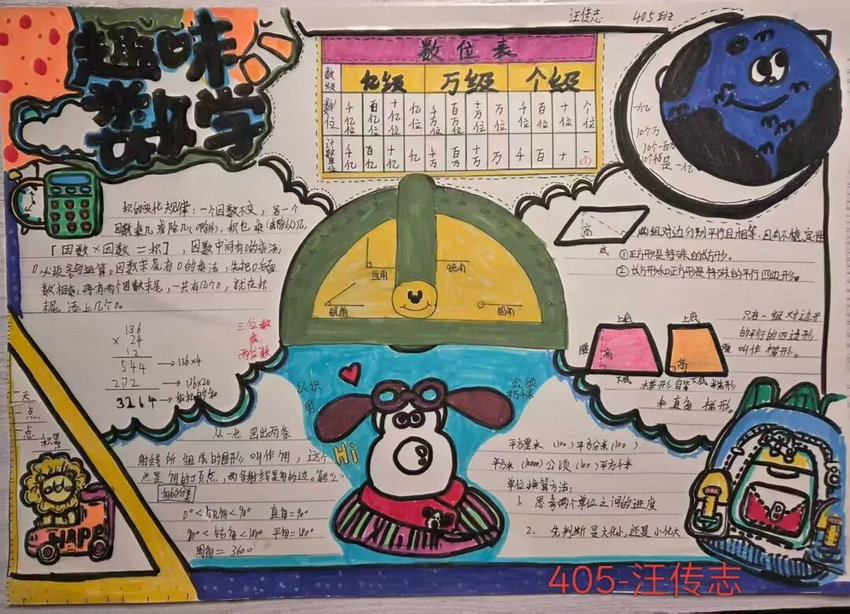 汪传志 405班
趣味
数学
数位表
数级 亿级 万级 个级
数位 千亿位 百亿位 十亿位 亿位 千万位 百万位 十万位 万位 千位 百位 十位 个位
计数单位 千亿 百亿 十亿 亿 千万 百万 十万 万 千 百 十 一
一亿
10个万
积的变化规律:一个因数不变,另一个
[因数×因数=积],因数中间有0的乘法,
数相乘,再看两个因数末尾,一共有几个0,就在积
末尾添上几个0。
136
× 24
544 → 136×4
272
3264
三位数
乘
两位数
高
底
两组对边分别平行且相等,具有不稳定性
①正方形是特殊的长方形。
②长方形和正方形是特殊的平行四边形。
直角 钝角
锐角 周角
上底 上底
高 高
只有一组对边平
行的四边形
叫作梯形。
和直角梯形。
认识
角
公顷
Hi
从一点引出两条
射线所组成的图形叫作角,这个
点是角的顶点,两条射线是角的边。
0°<锐角<90° 直角=90°
90°<钝角<180° 平角=180°
周角=360°
平方厘米 (100) 平方分米 (100)
平方米 (10000) 公顷 (100) 平方千米
单位换算方法:
1、思考两个单位之间的进度
2、先判断是大化小,还是小化大
HAPP
405-汪传志